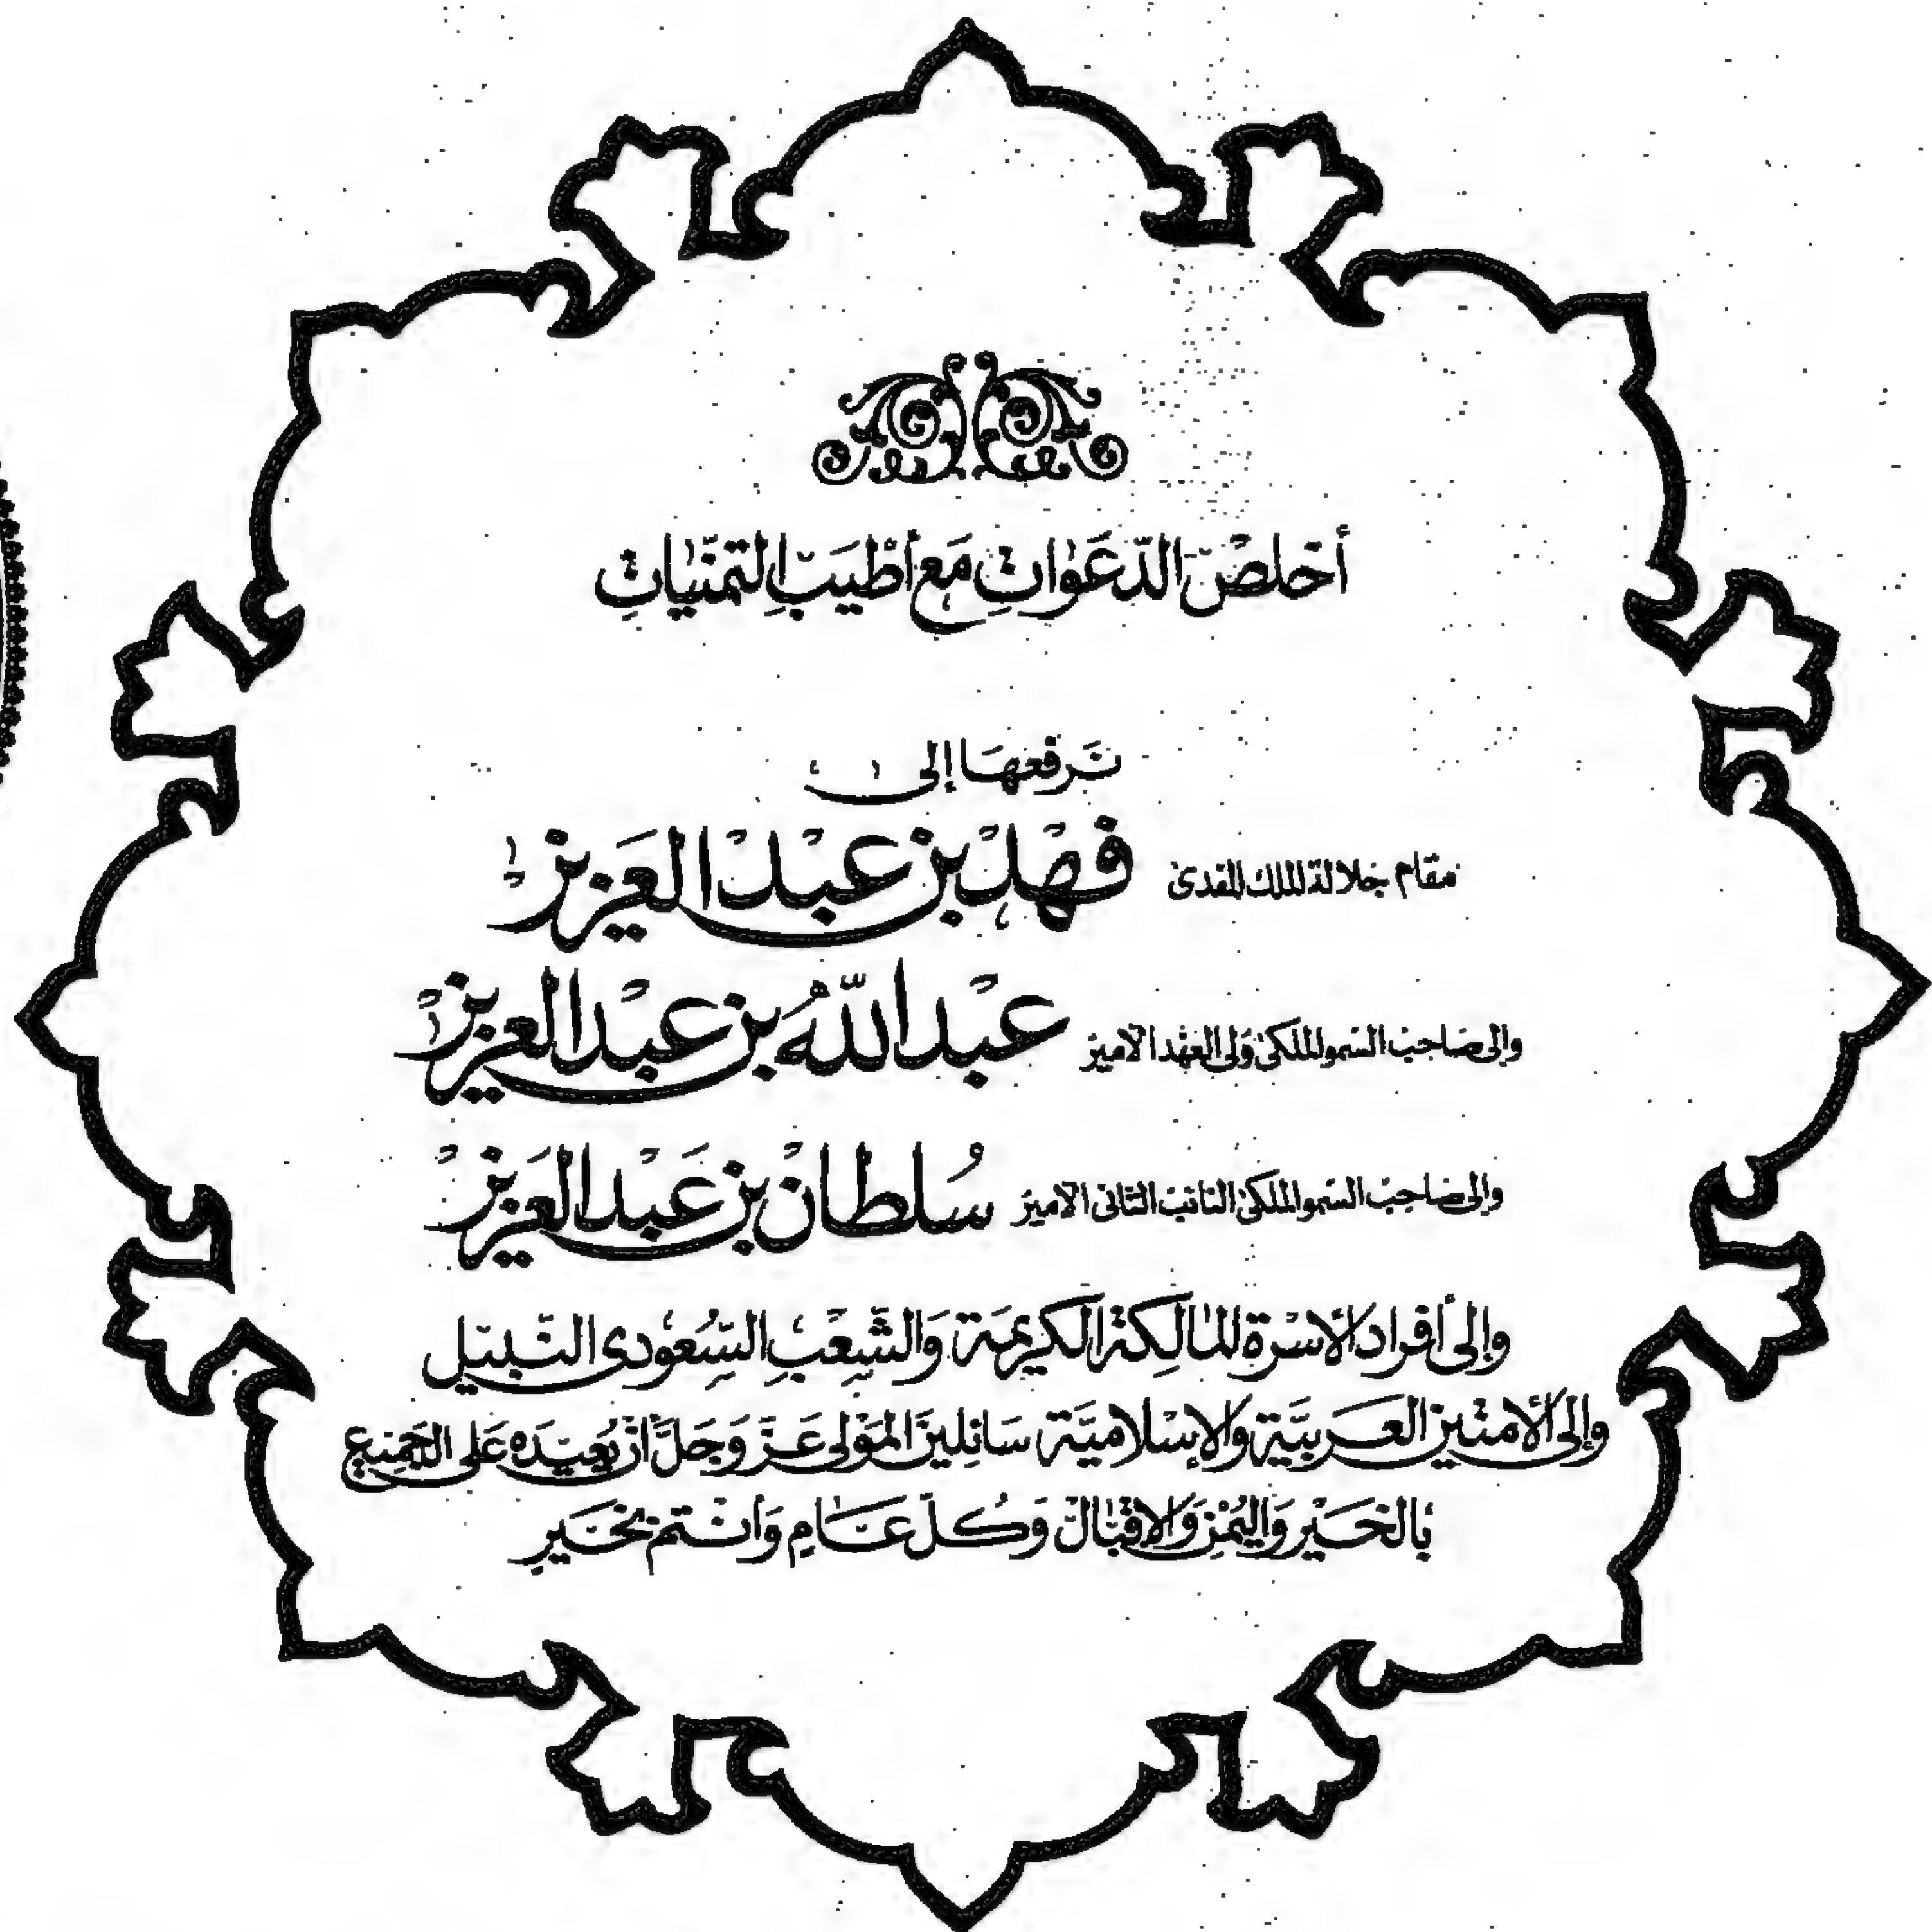 أخلص الدعوات مع أطيب التمنيات
نرفعها إلى
مقام جلالة الملك المفدى فهد بن عبد العزيز
وإلى صاحب السمو الملكي ولي العهد الأمير عبد الله بن عبد العزيز
وإلى صاحب السمو الملكي النائب الثاني الأمير سلطان بن عبد العزيز
وإلى أفراد الأسرة المالكة الكريمة والشعب السعودي النبيل
وإلى الأمتين العربية والإسلامية سائلين المولى عز وجل أن يعيده على الجميع
بالخير واليمن والإقبال وكل عام وأنتم بخير